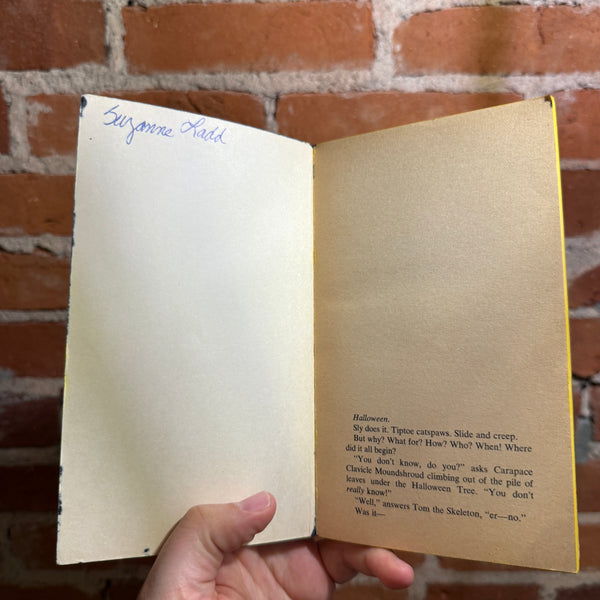 Suzanne Ladd
Halloween.
Sly does it. Tiptoe catspaws. Slide and creep.
But why? What for? How? Who? When! Where
did it all begin?
"You don't know, do you?" asks Carapace
Clavicle Moundshroud climbing out of the pile of
leaves under the Halloween Tree. "You don't
really know!"
"Well," answers Tom the Skeleton, "er—no."
Was it—